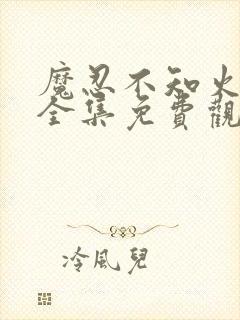 魔忍不知火
全集免費觀
冷風兒